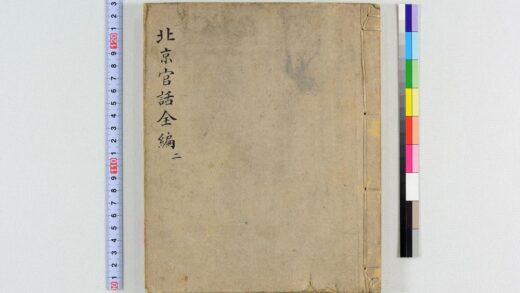 北京官話全編
二